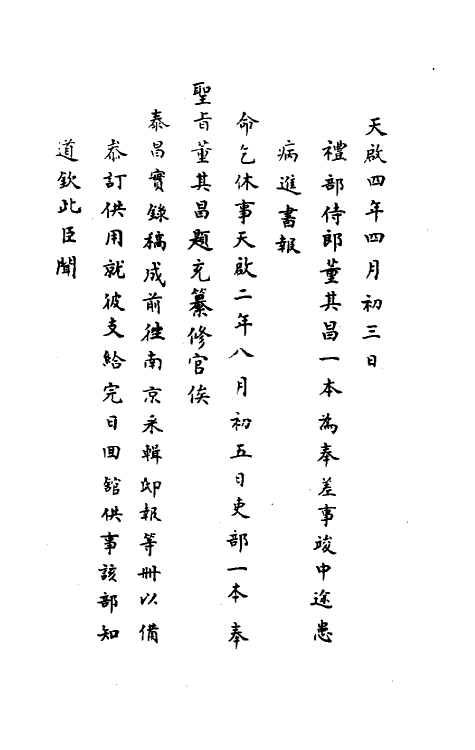 天啟四年四月初三日
禮部侍郎董其昌一本為奉差事竣中途患
病進書報
命乞休事天啟二年八月初五日吏部一本奉
聖旨董其昌題充纂修官俟
泰昌實錄稿成前徃南京采輯邸報等冊以備
叅訂供用就彼支給完日回舘供事該部知
道欽此臣聞